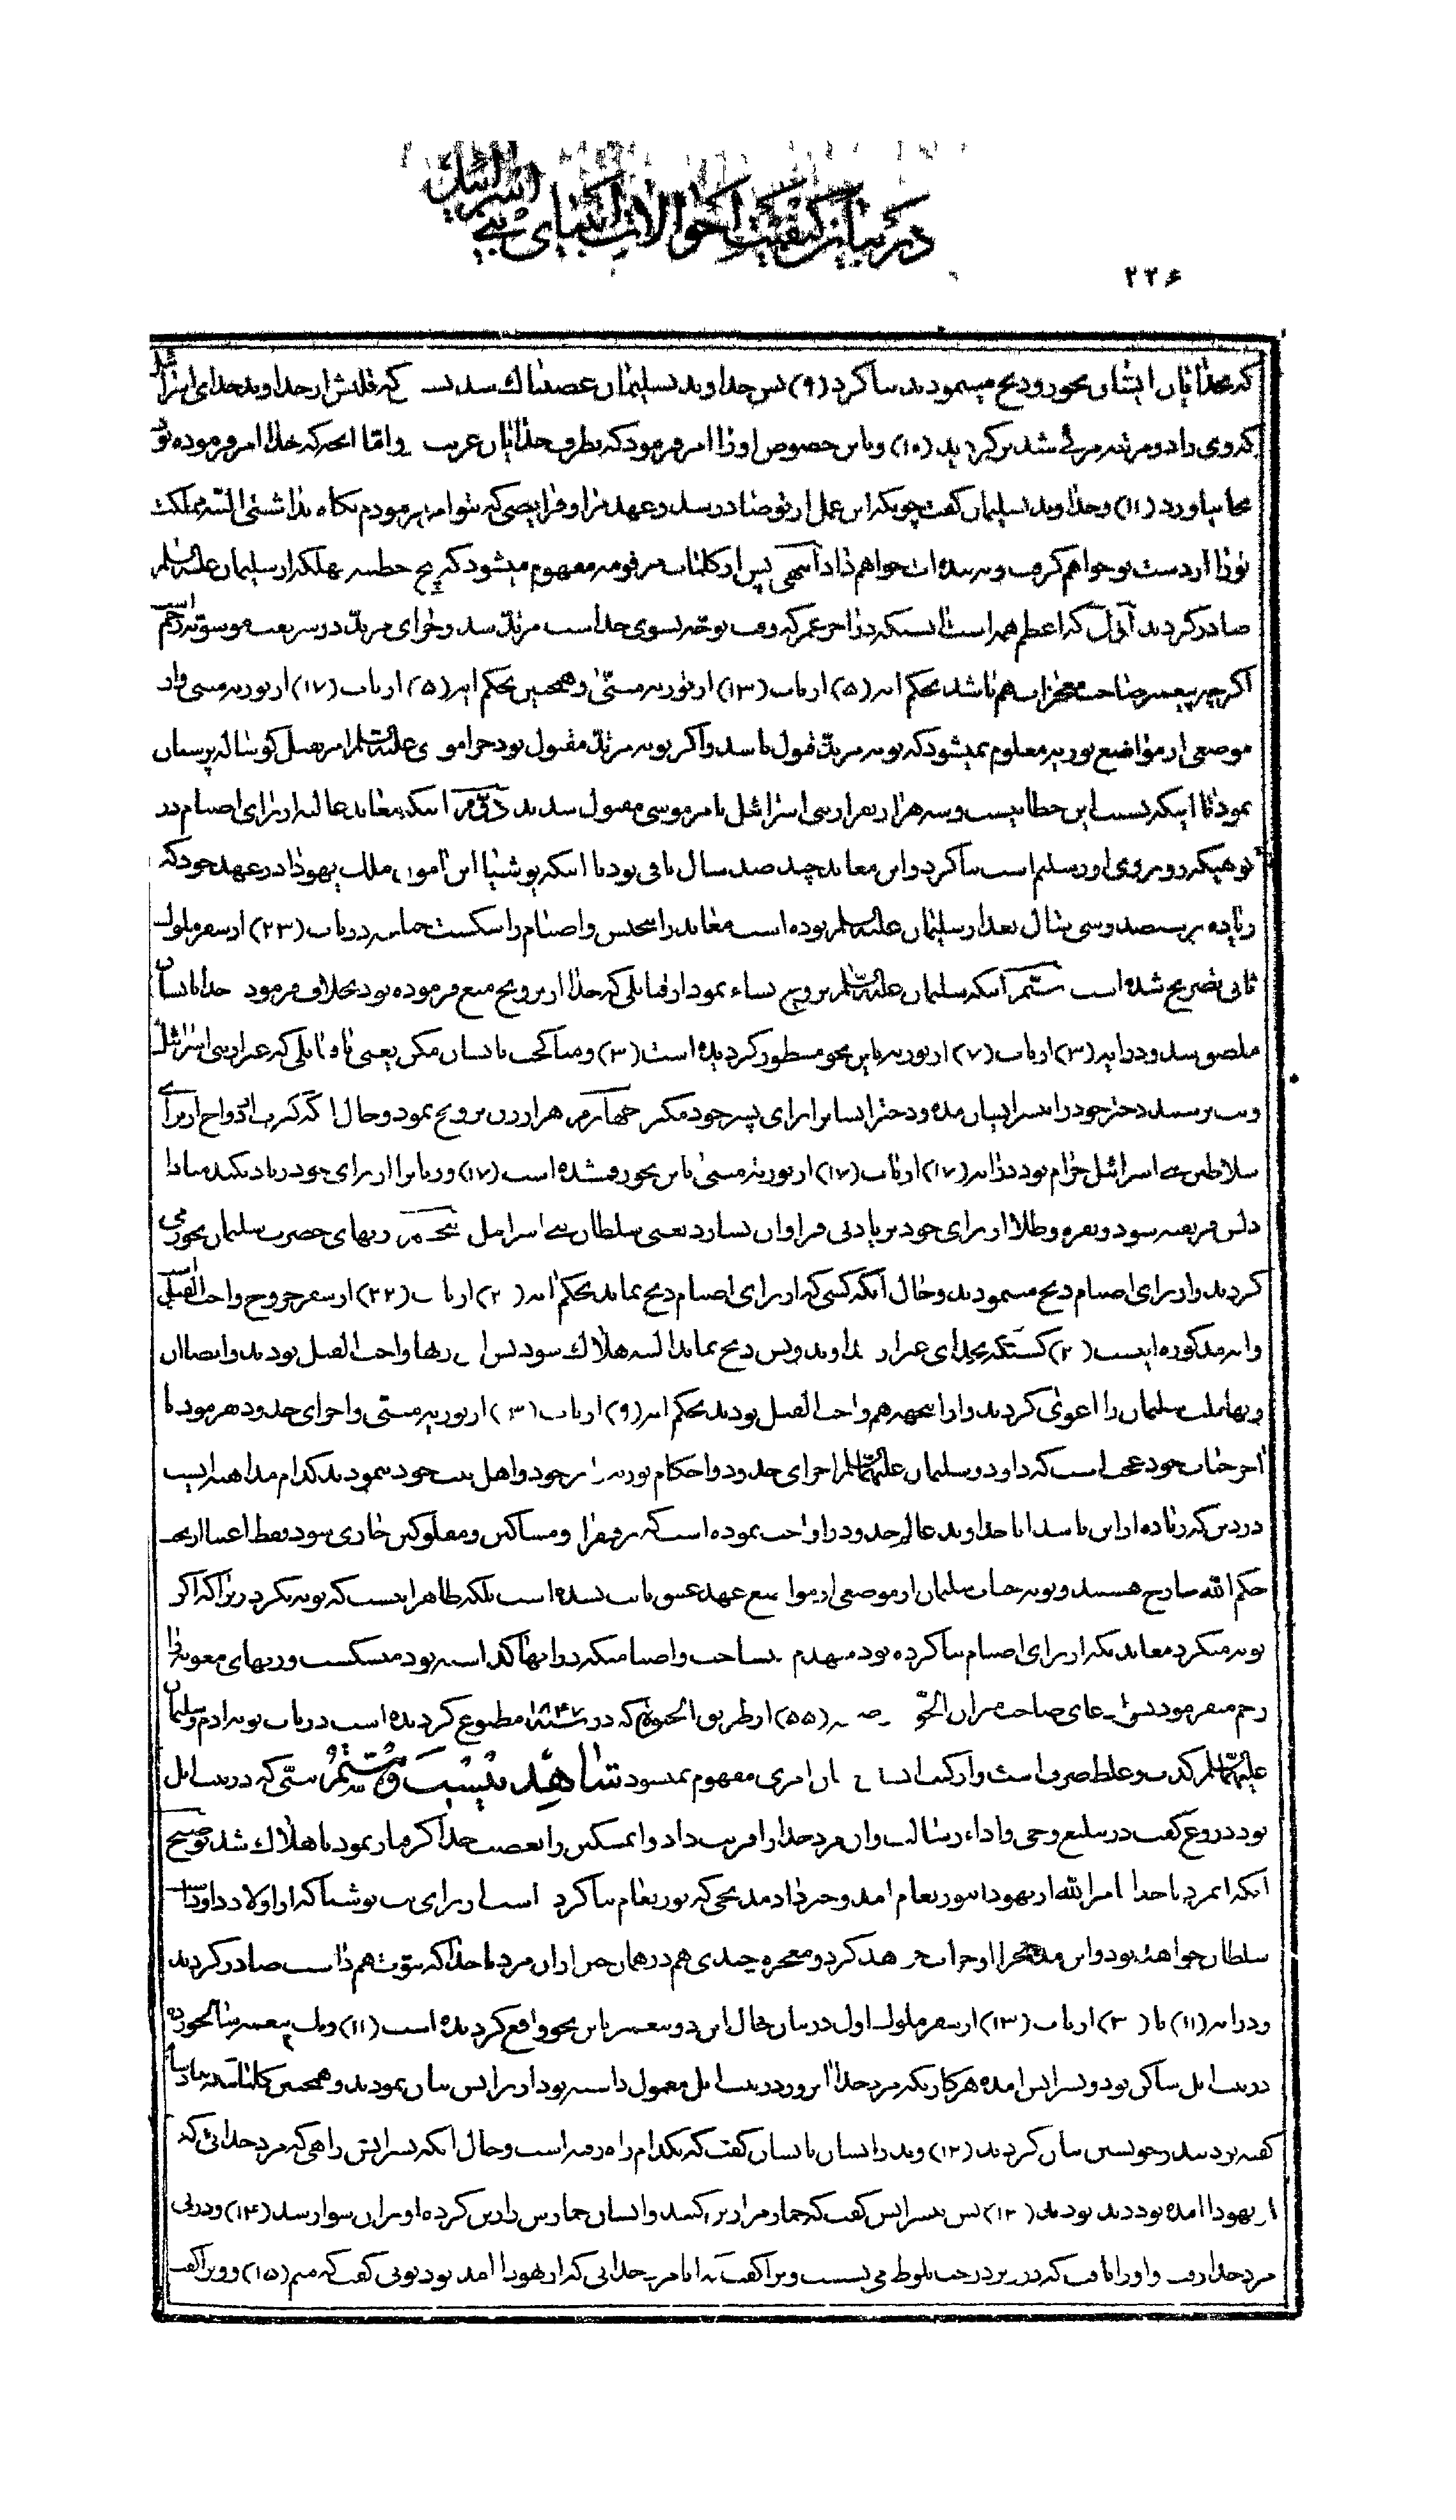 در بیان کیفیت احوالات انبیای بنی اسرائیل
۲۲۶
که بخدایان ایشان بخور و ذبح مینمودند بنا کرد (۹) پس خداوند بسلیمان غضبناك شد که قلبش از خداوند خدای اسرائیل
که وی را دو مرتبه مرئی شد برگردید (۱۰) و باین خصوص او را امر فرمود که بطرف خدایان غریب و اما آنچه که خدا امر فرموده بود
بجا نیاورد (۱۱) و خداوند بسلیمان گفت چونکه این عمل از تو صادر شد و عهد مرا و فرایضی که بتو امر فرمودم نگاه نداشتی البته مملکت
تو را از دست تو خواهم گرفت و به بنده ات خواهم داد انتهی پس از کلمات مرقومه مفهوم میشود که پنج خطیئه مهلکه از سلیمان علیه السلام
صادر گردید اول که اعظم همه است اینستکه در آخر عمر که وقت توجه بسوی خدا است مرتد شد و جزای مرتد در شریعت موسویه رجم است
اگر چه پیغمبر صاحب معجزات هم باشد بحکم آیه (۵) از باب (۱۳) از توریه مثنی و همچنین بحکم آیه (۵) از باب (۱۷) از توریه مثنی و از
موضعی از مواضع توریه معلوم نمیشود که توبه مرتد قبول باشد و اگر توبه مرتد مقبول بود چرا موسی علیه السلام امر بقتل گوساله پرستان
نمود تا اینکه بسبب این خطا بیست و سه هزار نفر از بنی اسرائیل بامر موسی مقتول شدند دوم اینکه معابد عالیه از برای اصنام در
کوهیکه روبروی اورشلیم است بنا کرد و این معابد چند صد سال باقی بود تا اینکه یوشیا ابن آمون ملك یهودا در عهد خود که
زیاده بر سیصد و سی سال بعد از سلیمان علیه السلام بوده است معابد را نجس و اصنام را شکست چنانچه در باب (۲۳) از سفر ملوك
ثانی تصریح شده است سیم آنکه سلیمان علیه السلام تزویج نساء نمود از قبایلی که خدا از تزویج منع فرموده بود بخلاف فرمود خدا بایشان
ملصق شد و در آیه (۳) از باب (۷) از توریه باین نحو مسطور گردیده است (۳) و مناکحت با ایشان مکن یعنی با قبایلی که غیر از بنی اسرائیل
و بت پرستند دختر خود را به پسر ایشان مده و دختر ایشان را برای پسر خود مگیر چهارم هزار زن تزویج نمود و حال آنکه کثرت ازواج از برای
سلاطین بنی اسرائیل حرام بود در آیه (۱۷) از باب (۱۷) از توریه مثنی باین نحو رقم شده است (۱۷) و زنان را از برای خود زیاد نکند مبادا
دلش فریفته شود و نقره و طلا از برای خود بزیادتی فراوان نسازد یعنی سلطان بنی اسرائیل پنجم زنهای حضرت سلیمان بخور می
کردند و از برای اصنام ذبح مینمودند و حال آنکه کسی که از برای اصنام ذبح نماید بحکم آیه (۲) از باب (۲۲) از سفر خروج واجب القتل است
و آیه مذکوره اینست (۲) کسیکه بخدای غیر از خداوند و بس ذبح نماید البته هلاك شود پس این زنها واجب القتل بودند و ایضا این
زنها قلب سلیمان را اغوی کردند و از اینجهه هم واجب القتل بودند بحکم آیه (۹) از باب (۱۳) از توریه مثنی و اجرای حدود نفرمود تا
آخر حیات خود عجب است که داود و سلیمان علیهما السلام اجرای حدود و احکام توریه را بر خود و اهل بیت خود ننمودند کدام مداهنه ایست
در دین که زیاده از این باشد آیا خداوند عالم حدود را واجب نموده است که بر فقرا و مساکین و مفلوکین جاری شود فقط اغنیا از تحت
حکم الله خارج هستند و توبه جناب سلیمان از موضعی از مواضع عهد عتیق ثابت نشده است بلکه ظاهر اینست که توبه نکرد زیرا که اگر
توبه میکرد معابدیکه از برای اصنام بنا کرده بود منهدم میساخت و اصنامیکه در آنها گذاشته بود میشکست و زنهای مغویه را
رجم میفرمود پس ادعای صاحب میزان الحق در صفحه (۵۵) از طریق الحیوة که در سنه ۱۸۴۷ مطبوع گردیده است در باب توبه آدم و سلیمان
علیهما السلام کذب و غلط صرف است و از کتب ایشان امری مفهوم نمیشود شاهد بیست و ششم نبی که در بیت ایل
بود دروغ گفت در تبلیغ وحی و اداء رسالت و آن مرد خدا را فریب داد و آن مسکین را بغضب خدا گرفتار نمود تا هلاك شد توضیح
آنکه آنمرد با خدا بامر الله از یهودا بسوی یربعام آمد و خبر داد مذبحی که یوربعام بنا کرد است از برای بت یوشیا که از اولاد داود است
سلطان خواهد بود و این مذبح را خراب خواهد کرد و معجزه چندی هم در همان حین از آن مرد با خدا که نبوت هم داشت صادر گردید
و در آیه (۱۱) تا (۳۰) از باب (۱۳) از سفر ملوك اول در بیان حال این دو پیغمبر باین نحو واقع گردیده است (۱۱) و یك پیغمبر سالخورده
در بیت ایل ساکن بود و پسرانش آمده هر کاریکه مرد خدا آن روز در بیت ایل معمول داشته بود از برایش بیان نمودند و همچنین کلماتیکه بپادشاه
گفته بود به پدر خویشتن بیان کردند (۱۲) و پدر ایشان بایشان گفت که بکدام راه رفته است و حال آنکه پسرانش راهی که مرد خدائی که
از یهودا آمده بود دیده بودند (۱۳) پس به پسرانش گفت که حمار مرا زین کنید و ایشان حمارش را زین کرده او بر آن سوار شد (۱۴) و در پی
مرد خدا رفت و او را یافت که در زیر درخت بلوط می نشست و ویرا گفت که آیا مرد خدائی که از یهودا آمد بود توئی گفت که منم (۱۵) و ویرا گفت